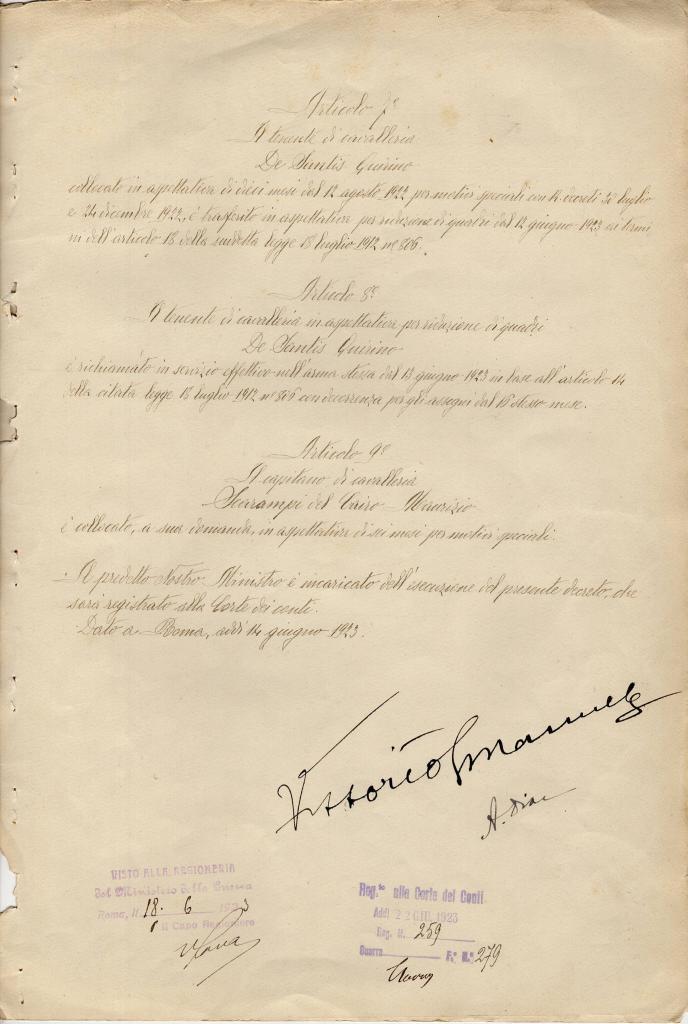 Articolo 7º
Il tenente di cavalleria
De Santis Guirino
collocato in aspettativa di dieci mesi dal 12 agosto 1922 per motivi speciali con decreti luglio
e 24 dicembre 1922, è trasferito in aspettativa per riduzione di quadri dal 12 giugno 1923 ai termi
ni dell'articolo 18 della suddetta legge 18 luglio 1912 nº 806.
Articolo 8º
Il tenente di cavalleria in aspettativa per riduzione di quadri
De Santis Guirino
è richiamato in servizio effettivo nell'arma stessa dal 13 giugno 1923 in base all'articolo 14
della citata legge 18 luglio 1912 nº 806 con decorrenza per gli assegni dal 16 stesso mese.
Articolo 9º
Il capitano di cavalleria
Scarampi del Cairo Maurizio
è collocato, a sua domanda, in aspettativa di sei mesi per motivi speciali.
Il predetto Nostro Ministro è incaricato dell'esecuzione del presente decreto, che
sarà registrato alla Corte dei conti.
Dato a Roma, addì 14 giugno 1923.
Vittorio Emanuele
A. Diaz
VISTO ALLA RAGIONERIA
del Ministero della Guerra
Roma, il 18. 6 1923
Il Capo Ragioniere
Reg.to alla Corte dei Conti
Addì 22 GIU. 1923
Reg. N. 259
Guerra F.º N.º 279